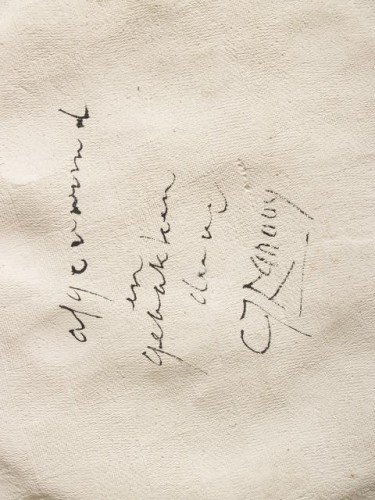 afgevormd
en
gebakken
door